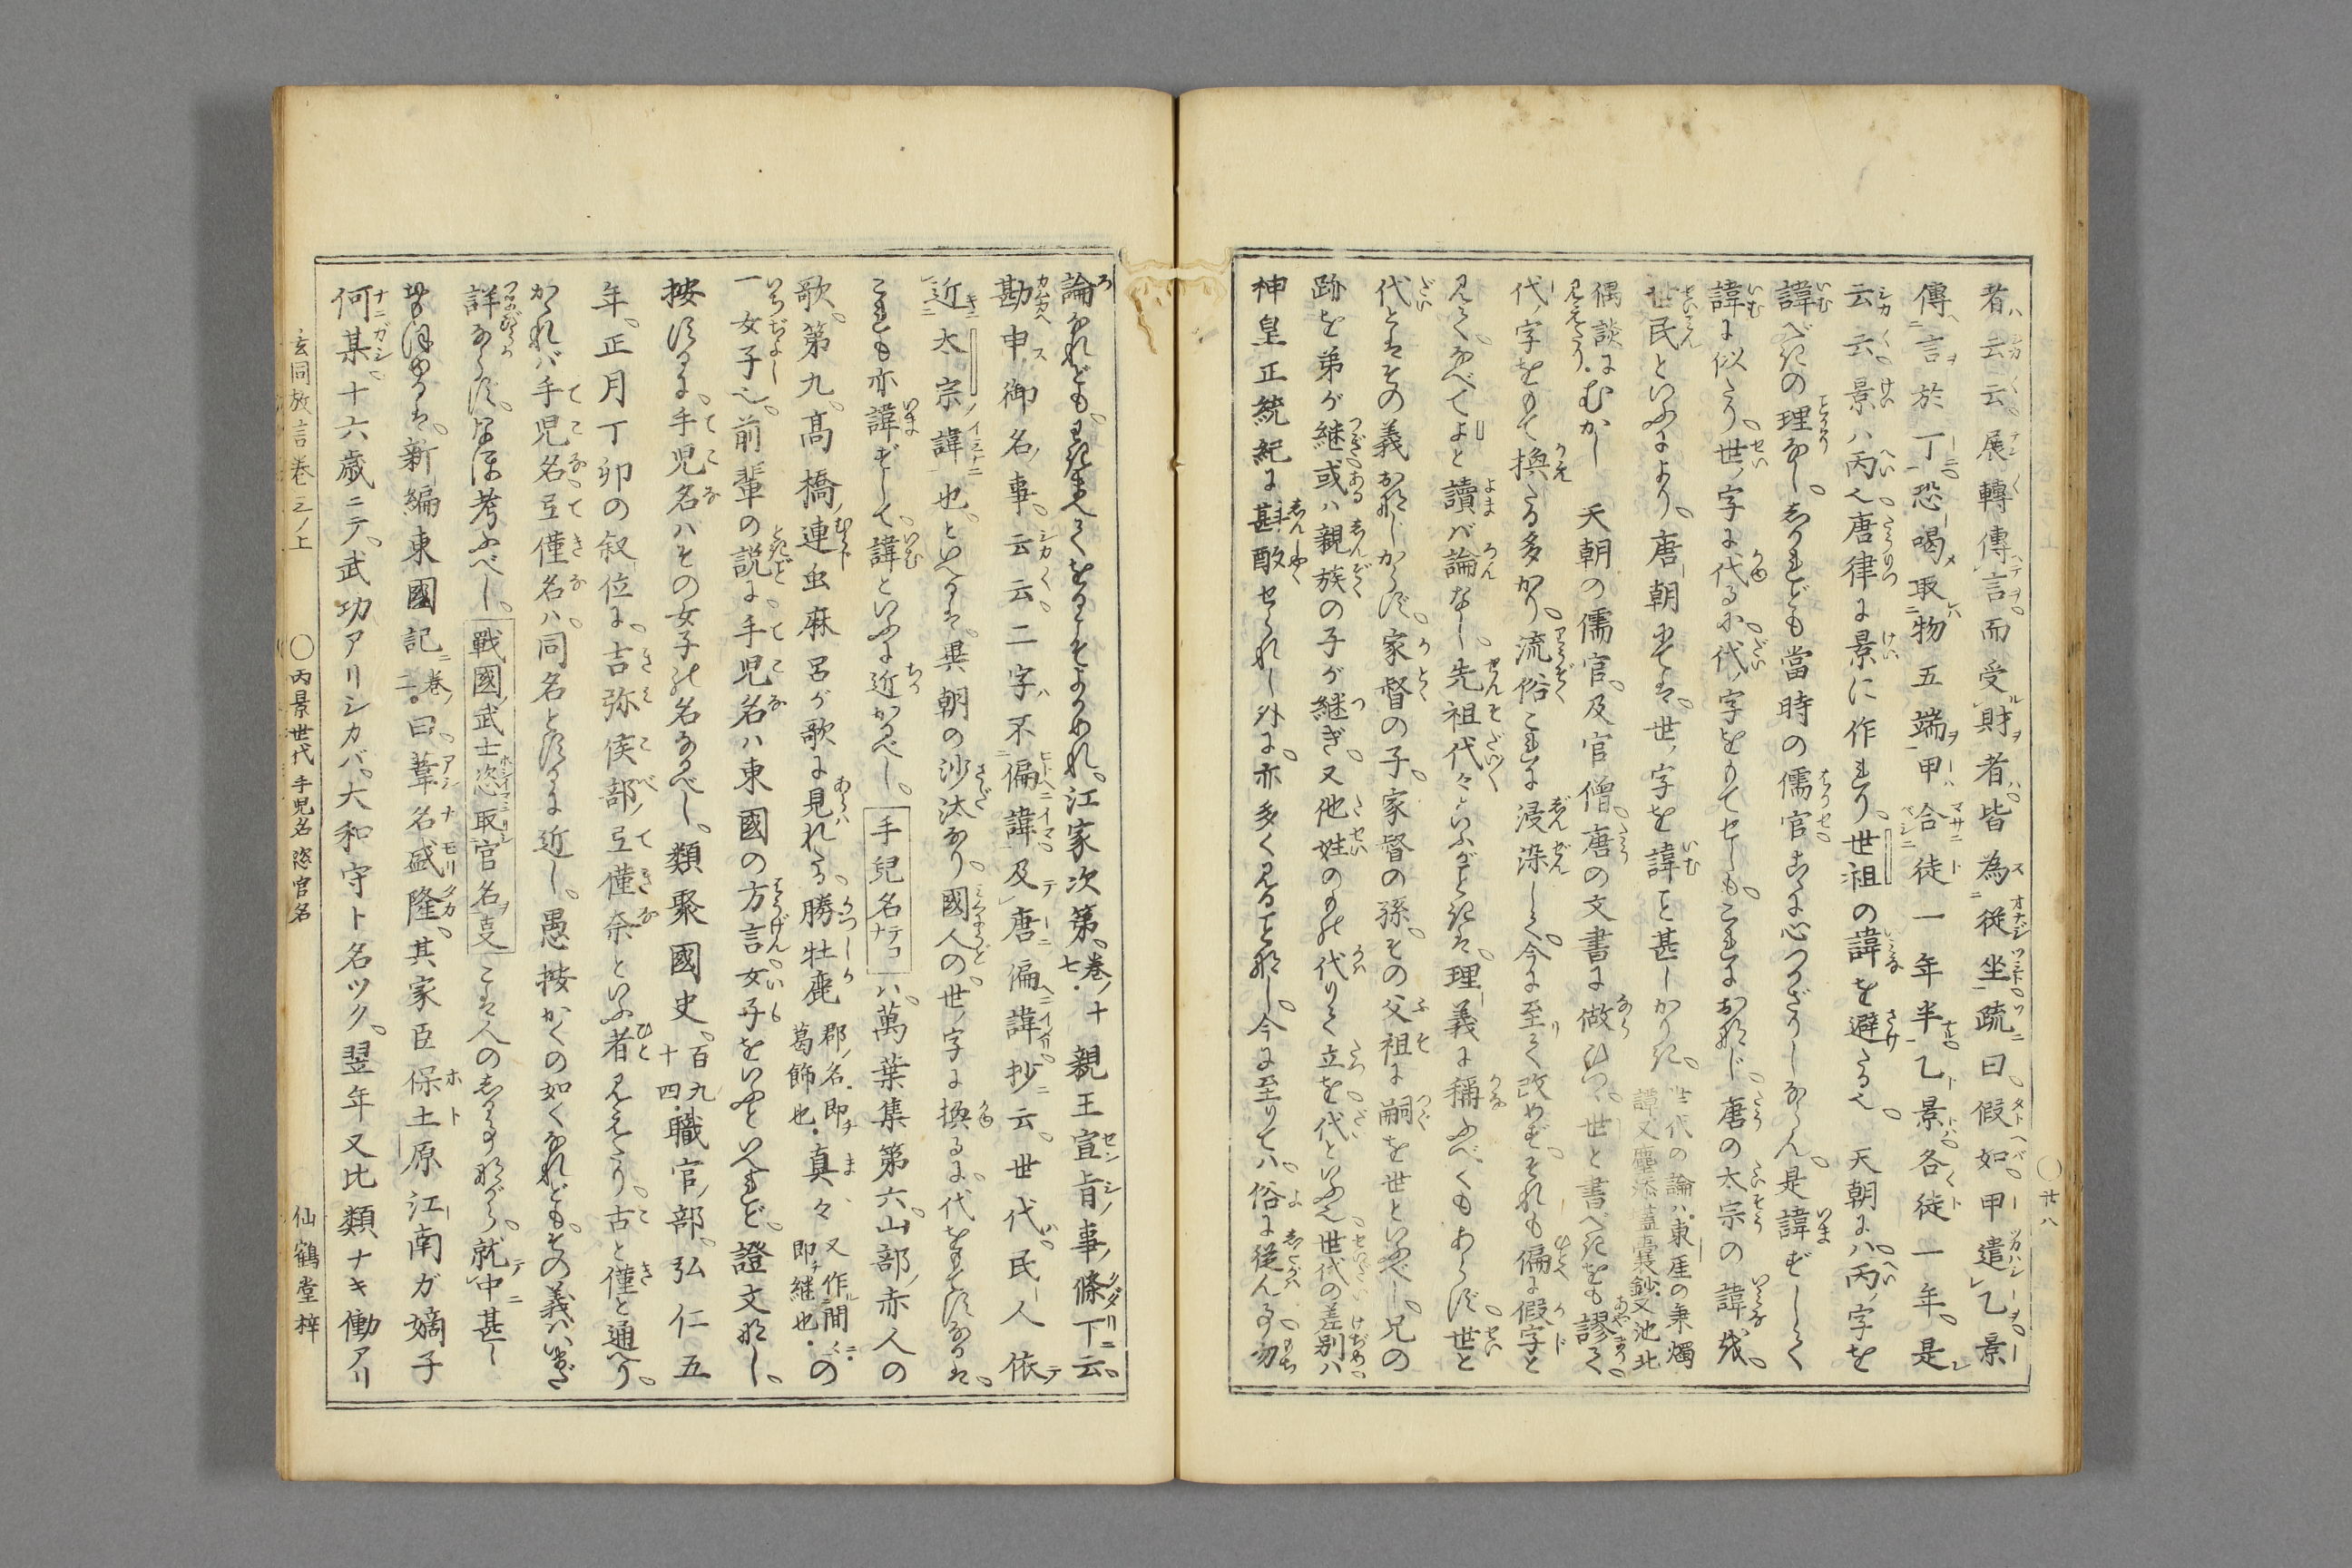 者云云展轉傳言而受財者皆為從坐疏曰假如甲遣乙景
傳言於丁恐喝取物五端甲合徒一年半乙景各徒一年是
云云景ハ丙也唐律に景に作れり世祖の諱を避たる也 天朝にハ丙ノ字を
諱べきの理なししかれども當時の儒官こゝに心つかざりしならん是諱ずしく
諱に似たり世ノ字に代るに代ノ字をもてせしもこれにおなじ唐の太宗の諱我
世民といふより唐朝にては世ノ字を諱こと甚しかりき 世代の論ハ東厓の秉燭 諱又塵添壒囊鈔又池北
偶談に見えたりむかし 天朝の儒官及官僧唐の文書に倣ひつゝ世と書べきをも謬て
代ノ字をもて換たる多かり流俗これに浸染しく今に至りく改めずそれも偏に假字と
見てなべてよと讀バ論なし先祖代々といふがごときは理義に稱ふべくもあらず世と
代とはその義おなじからず家督の子家督の孫その父祖に嗣を世といふべし兄の
跡を弟が継或ハ親族の子が継ぎ又他姓のものも代りて立を代といふ也世代の差別ハ
神皇正統紀に斟酌せられし外に亦多く見ることなし今に至りてハ俗に從んこと勿
〇廿八
論なれどもわきまへてをるこそよかめれ江家次第巻ノ十七親王宣旨事ノ條下云
勘申御名ノ事云云二字ハ不偏諱及唐偏諱抄云世代民人依
近太宗ノ諱也といへるは異朝の沙汰なり國人の世ノ字に換るに代をもてするは
これも亦諱ずして諱といふに近かるべし 手兒名テコナ ハ萬葉集第六山部ノ赤人の
歌第九高橋ノ連虫麻呂が歌に見れたる勝牡鹿 郡ノ名即葛飾也 真々 又作間々即継也 の
一女子也前輩の説に手兒名ハ東國の方言女子をいふといへれど證文なし
按ずるに手兒名ハその女子の名なるべし類聚國史百九十四職官ノ部弘仁五
年正月丁卯の叙位に吉弥侯部ノ弖僅奈といふ者見えたり古と僅と通へり
かゝれバ手児名弖僅名ハ同名とするに近し愚按かくの如くなれどもその義ハいまだ
詳ならずなほ考ふべし 戰國ノ武士恣取官名支 こは人のしる事ながら就中甚し
新編東國記二ノ巻曰葦名盛隆其家臣保土原江南ガ嫡子
何某十六歳ニテ武功アリシカバ大和守ト名ツク翌年又比類ナキ働アリ
玄同放言巻三ノ上 〇丙景世代 手児名 恣官名 仙鶴堂梓